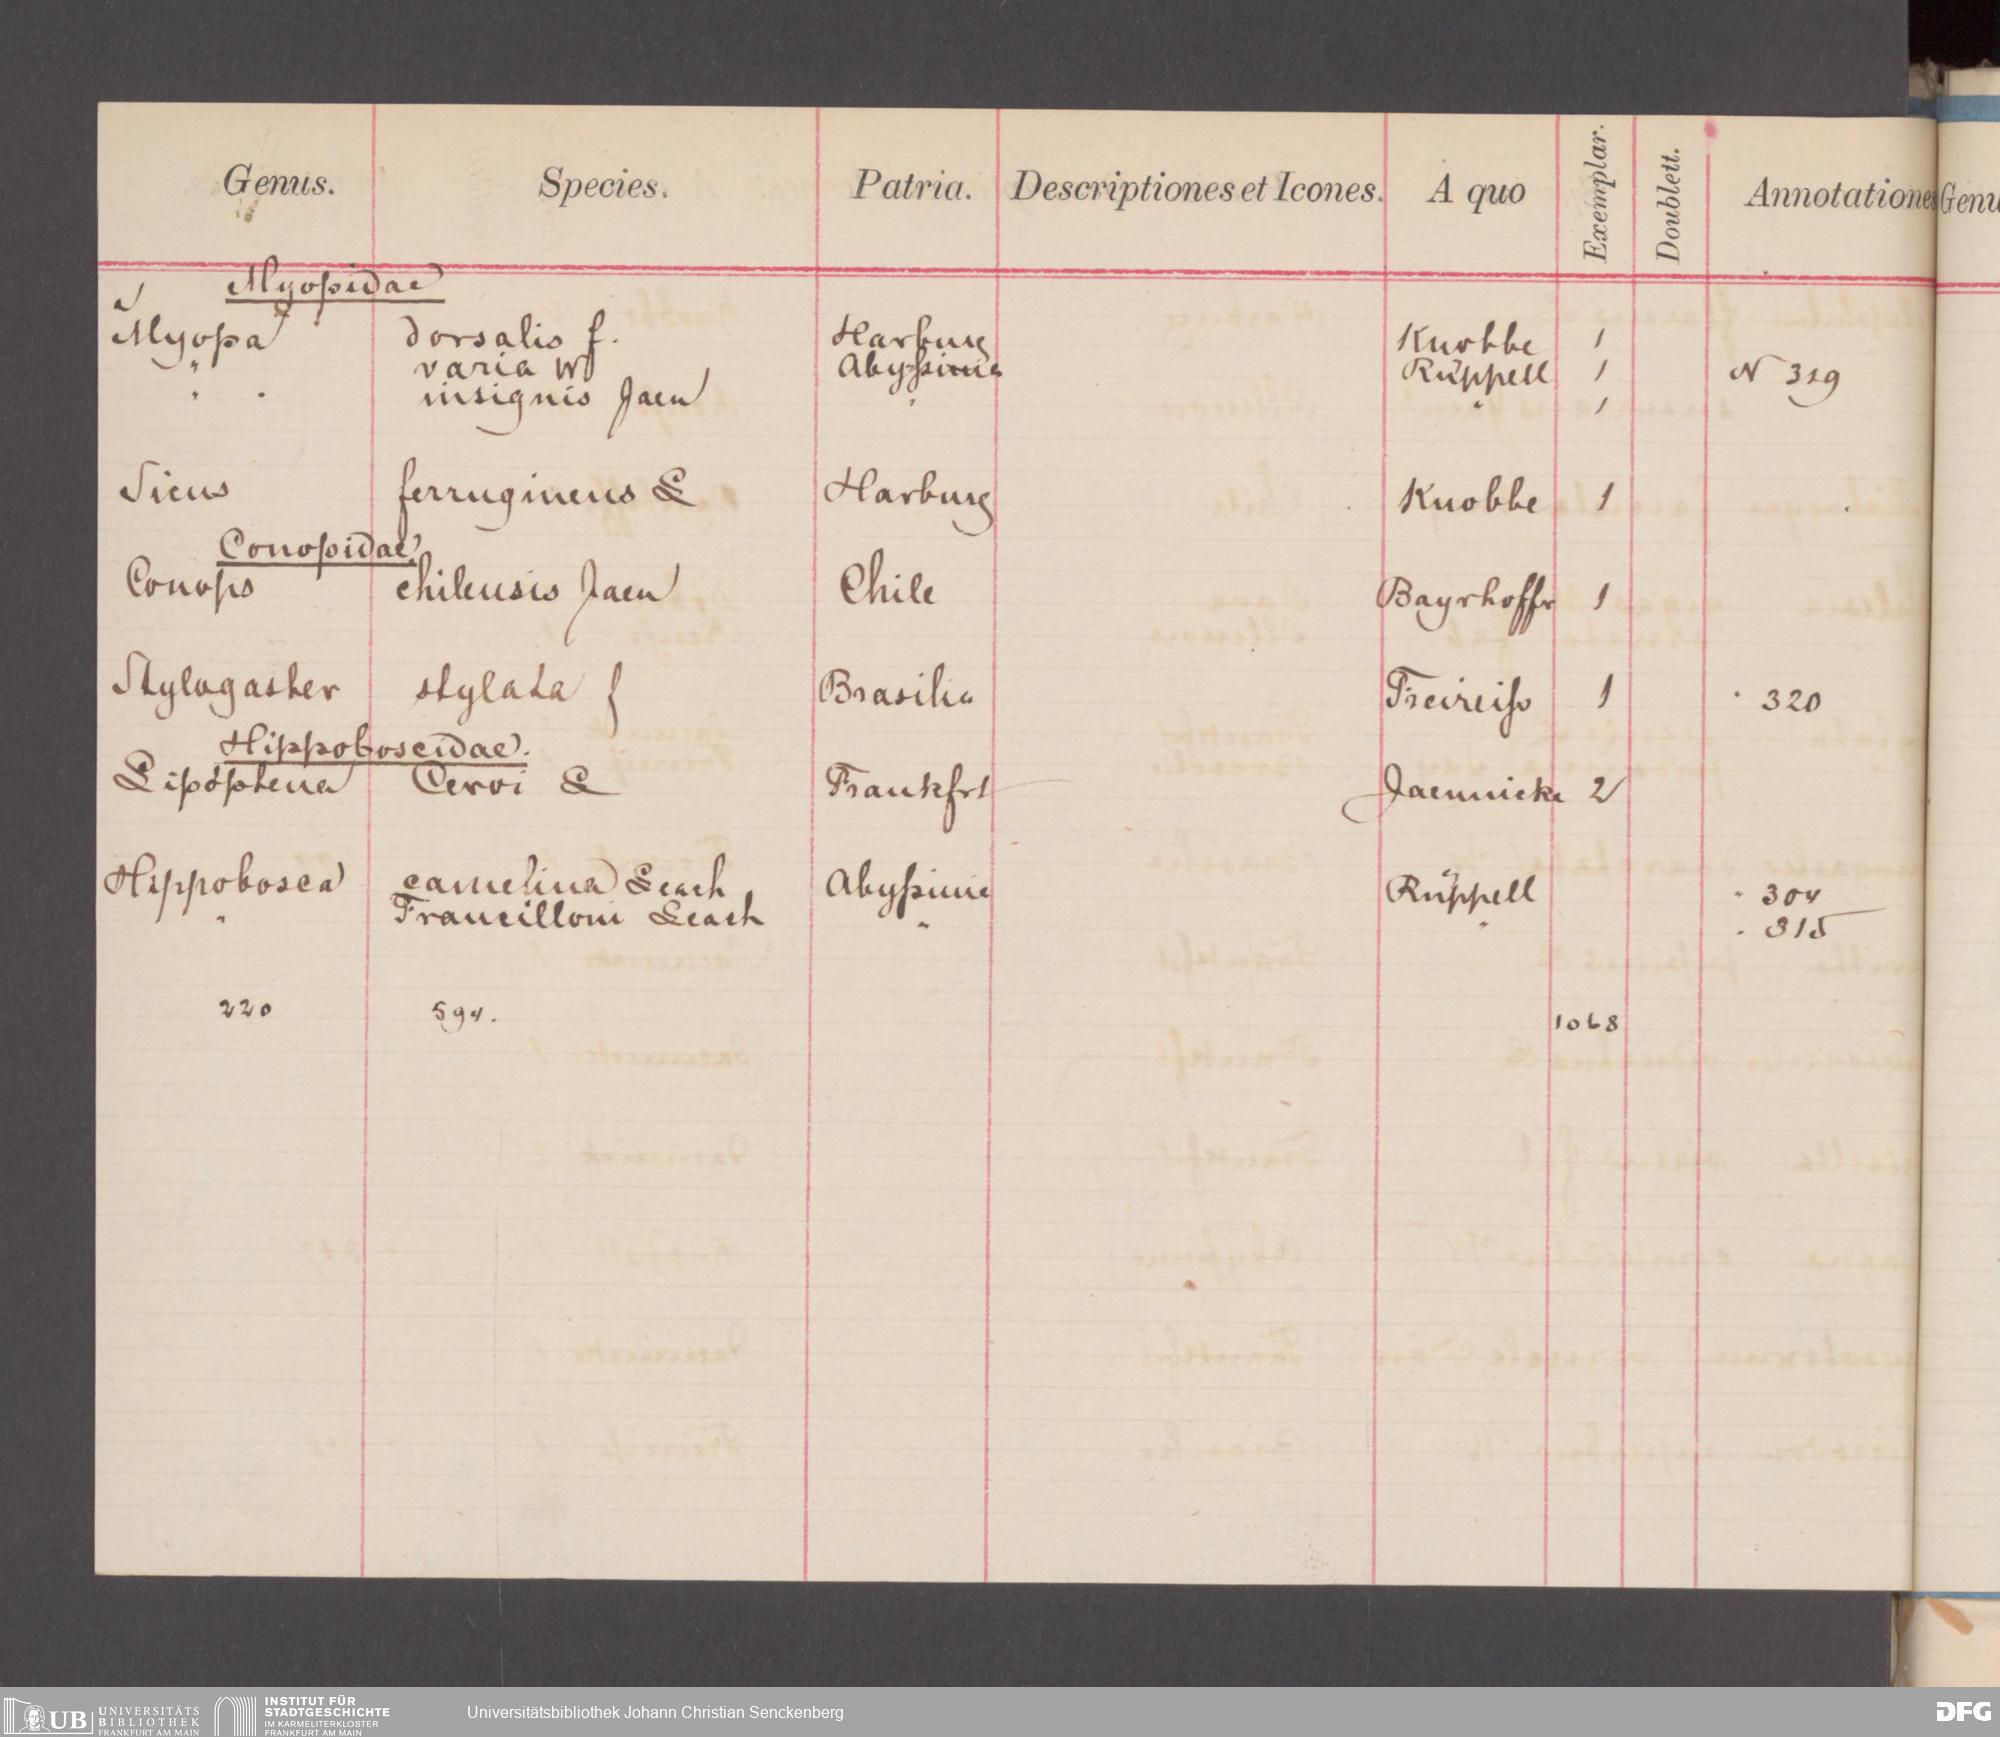 Genus. Species. Patria. Descriptiones et Icones. A quo Exemplar. Doublett. Annotationes Genu
Myopidae
Myopa dorsalis f. Harburg Knobbe 1
" varia W Abyßinia Rüppell 1 N 319
" " insignis Jaen " " 1
Sicus ferrugineus L Harburg Knobbe 1
Conopidae
Conops chilensis Jaen Chile Bayrhoffr 1
Stylogaster stylata f Brasilia Freireiss 1 " 320
Hippoboscidae.
Lipoptena Cervi L Frankfrt Jaennicke 2
Hippobosca camelina Leach Abyßinie Rüppell " 304
" Francilloni Leach " " " 315
220 594. 1068
UB UNIVERSITÄTS
BIBLIOTHEK
FRANKFURT AM MAIN
INSTITUT FÜR
STADTGESCHICHTE
IM KARMELITERKLOSTER
FRANKFURT AM MAIN
Universitätsbibliothek Johann Christian Senckenberg
DFG